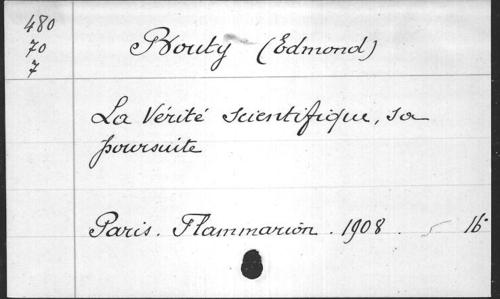 480
70
7
Bouty (Edmond)
La Vérité scientifique, sa
poursuite
Paris. Flammarion. 1908. 16°